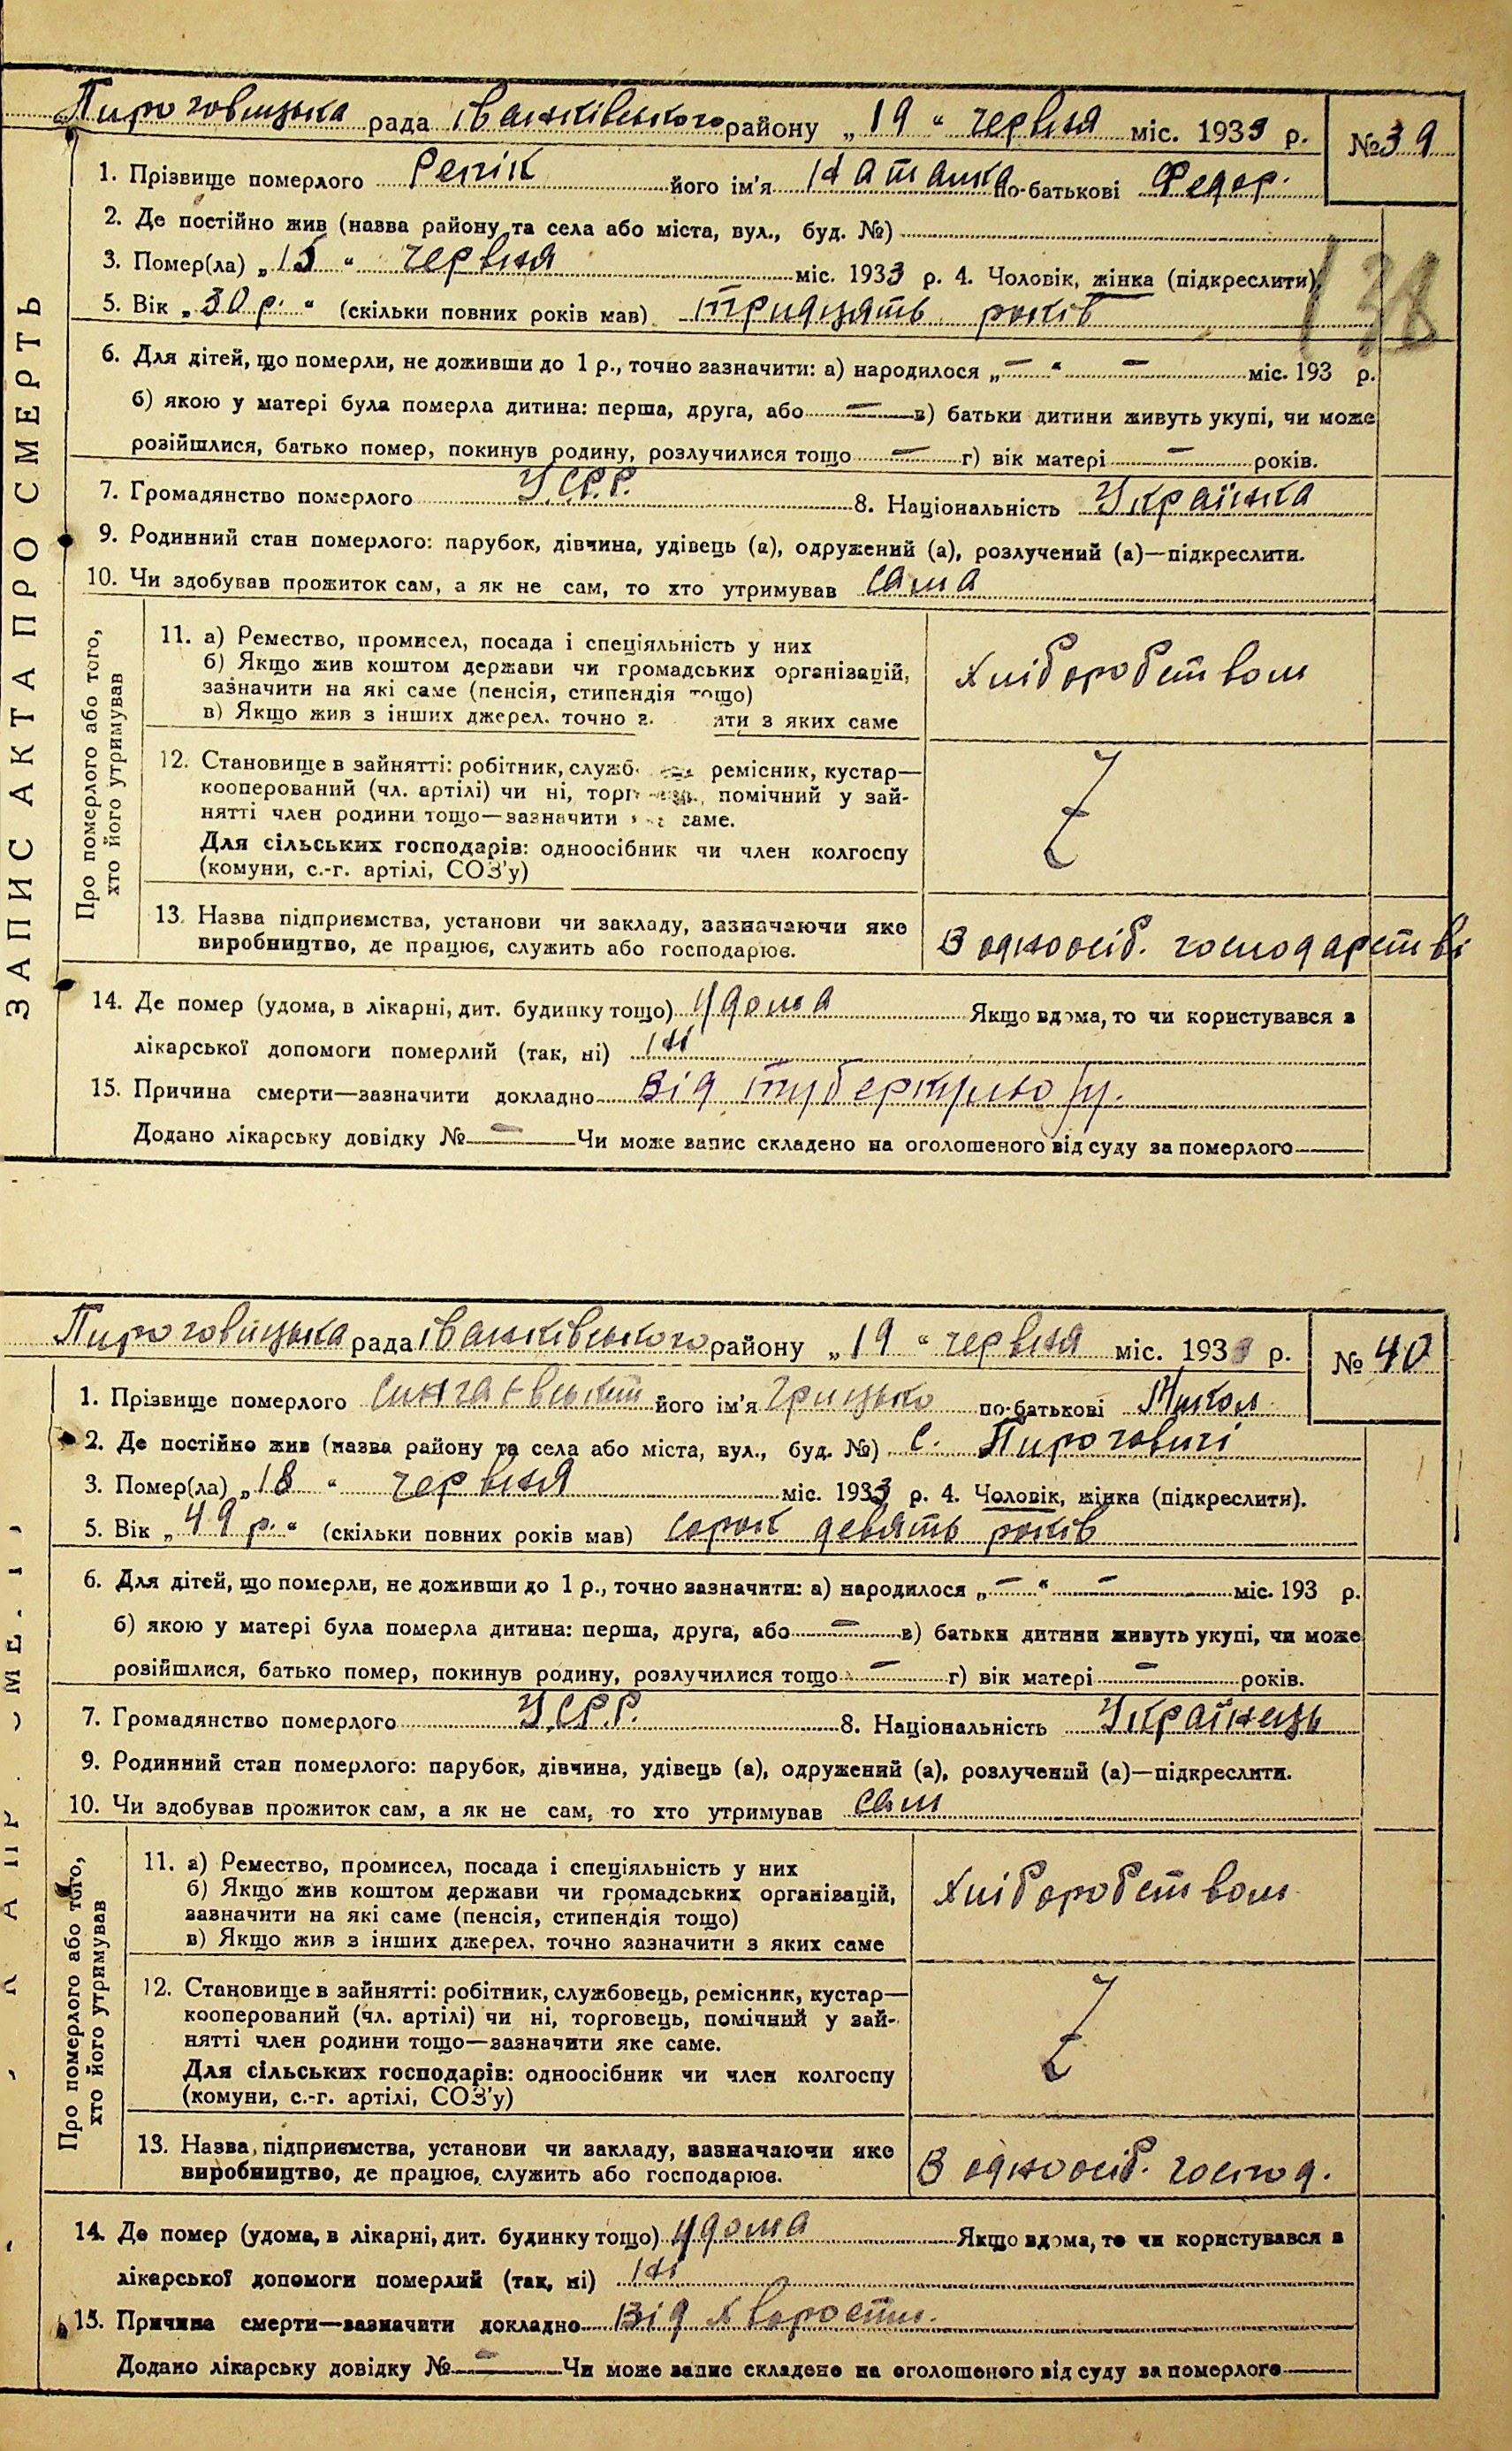 ЗАПИС АКТА ПРО СМЕРТЬ
Пироговицька рада Іванківського району „19“ червня міс. 1933 р. №39
1. Прізвище померлого Репік його ім'я Наталка по-батькові Федор.
2. Де постійно жив (назва району та села або міста, вул., буд. №)
3. Помер(ла) „15“ червня міс. 1933 р. 4. Чоловік, жінка (підкреслити).
138
5. Вік „30 р.“ (скільки повних років мав) тридцять років
6. Для дітей, що померли, не доживши до 1 р., точно зазначити: а) народилося „—“ — міс. 193 р.
б) якою у матері була померла дитина: перша, друга, або — в) батьки дитини живуть укупі, чи може
розійшлися, батько помер, покинув родину, розлучилися тощо — г) вік матері — років.
7. Громадянство померлого У.С.Р.Р. 8. Національність Українка
9. Родинний стан померлого: парубок, дівчина, удівець (а), одружений (а), розлучений (а)—підкреслити.
10. Чи здобував прожиток сам, а як не сам, то хто утримував сама
Про померлого або того,
хто його утримував
11. а) Ремество, промисел, посада і спеціяльність у них
б) Якщо жив коштом держави чи громадських організацій,
зазначити на які саме (пенсія, стипендія тощо)
в) Якщо жив з інших джерел, точно з. ити з яких саме
хліборобством
12. Становище в зайнятті: робітник, службо ремісник, кустар—
кооперований (чл. артілі) чи ні, торг помічний у зай-
нятті член родини тощо—зазначити саме.
Для сільських господарів: одноосібник чи член колгоспу
(комуни, с.-г. артілі, СОЗ'у)
13. Назва підприємства, установи чи закладу, зазначаючи яке
виробництво, де працює, служить або господарює.
В одноосіб. господарстві
14. Де помер (удома, в лікарні, дит. будинку тощо) удома Якщо вдома, то чи користувався з
лікарської допомоги померлий (так, ні) ні
15. Причина смерти—зазначити докладно Від туберкульозу.
Додано лікарську довідку № — Чи може запис складено на оголошеного від суду за померлого
Пироговицька рада Іванківського району „19“ червня міс. 1933 р. № 40
1. Прізвище померлого його ім'я Грицько по-батькові Микол
2. Де постійно жив (назва району та села або міста, вул., буд. №) с. Пироговичі
3. Помер(ла) „18“ червня міс. 1933 р. 4. Чоловік, жінка (підкреслити).
5. Вік „49 р.“ (скільки повних років мав) сорок девять років
6. Для дітей, що померли, не доживши до 1 р., точно зазначити: а) народилося „—“ — міс. 193 р.
б) якою у матері була померла дитина: перша, друга, або — в) батьки дитини живуть укупі, чи може
розійшлися, батько помер, покинув родину, розлучилися тощо — г) вік матері — років.
7. Громадянство померлого У.С.Р.Р. 8. Національність Українець
9. Родинний стан померлого: парубок, дівчина, удівець (а), одружений (а), розлучений (а)—підкреслити.
10. Чи здобував прожиток сам, а як не сам, то хто утримував сам
Про померлого або того,
хто його утримував
11. а) Ремество, промисел, посада і спеціяльність у них
б) Якщо жив коштом держави чи громадських організацій,
зазначити на які саме (пенсія, стипендія тощо)
в) Якщо жив з інших джерел, точно зазначити з яких саме
хліборобством
12. Становище в зайнятті: робітник, службовець, ремісник, кустар—
кооперований (чл. артілі) чи ні, торговець, помічний у зай-
нятті член родини тощо—зазначити яке саме.
Для сільських господарів: одноосібник чи член колгоспу
(комуни, с.-г. артілі, СОЗ'у)
13. Назва підприємства, установи чи закладу, зазначаючи яке
виробництво, де працює, служить або господарює.
В одноосіб. господ.
14. Де помер (удома, в лікарні, дит. будинку тощо) удома Якщо вдома, то чи користувався з
лікарської допомоги померлий (так, ні) ні
15. Причина смерти—зазначити докладно Від хворости.
Додано лікарську довідку № — Чи може запис складено на оголошеного від суду за померлого